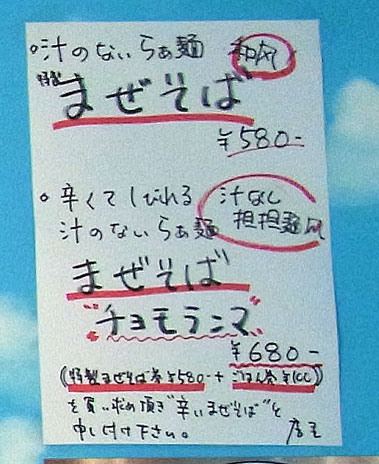 。汁のないらぁ麺 和風
特製
まぜそば
¥580-
。辛くてしびれる 汁なし
汁のないらぁ麺 担担麺風
まぜそば
"チョモランマ"
¥680-
(特製まぜそば券¥580-+ごはん券¥100)
を買い求め頂き"辛いまぜそば"と
申し付け下さい。 店主